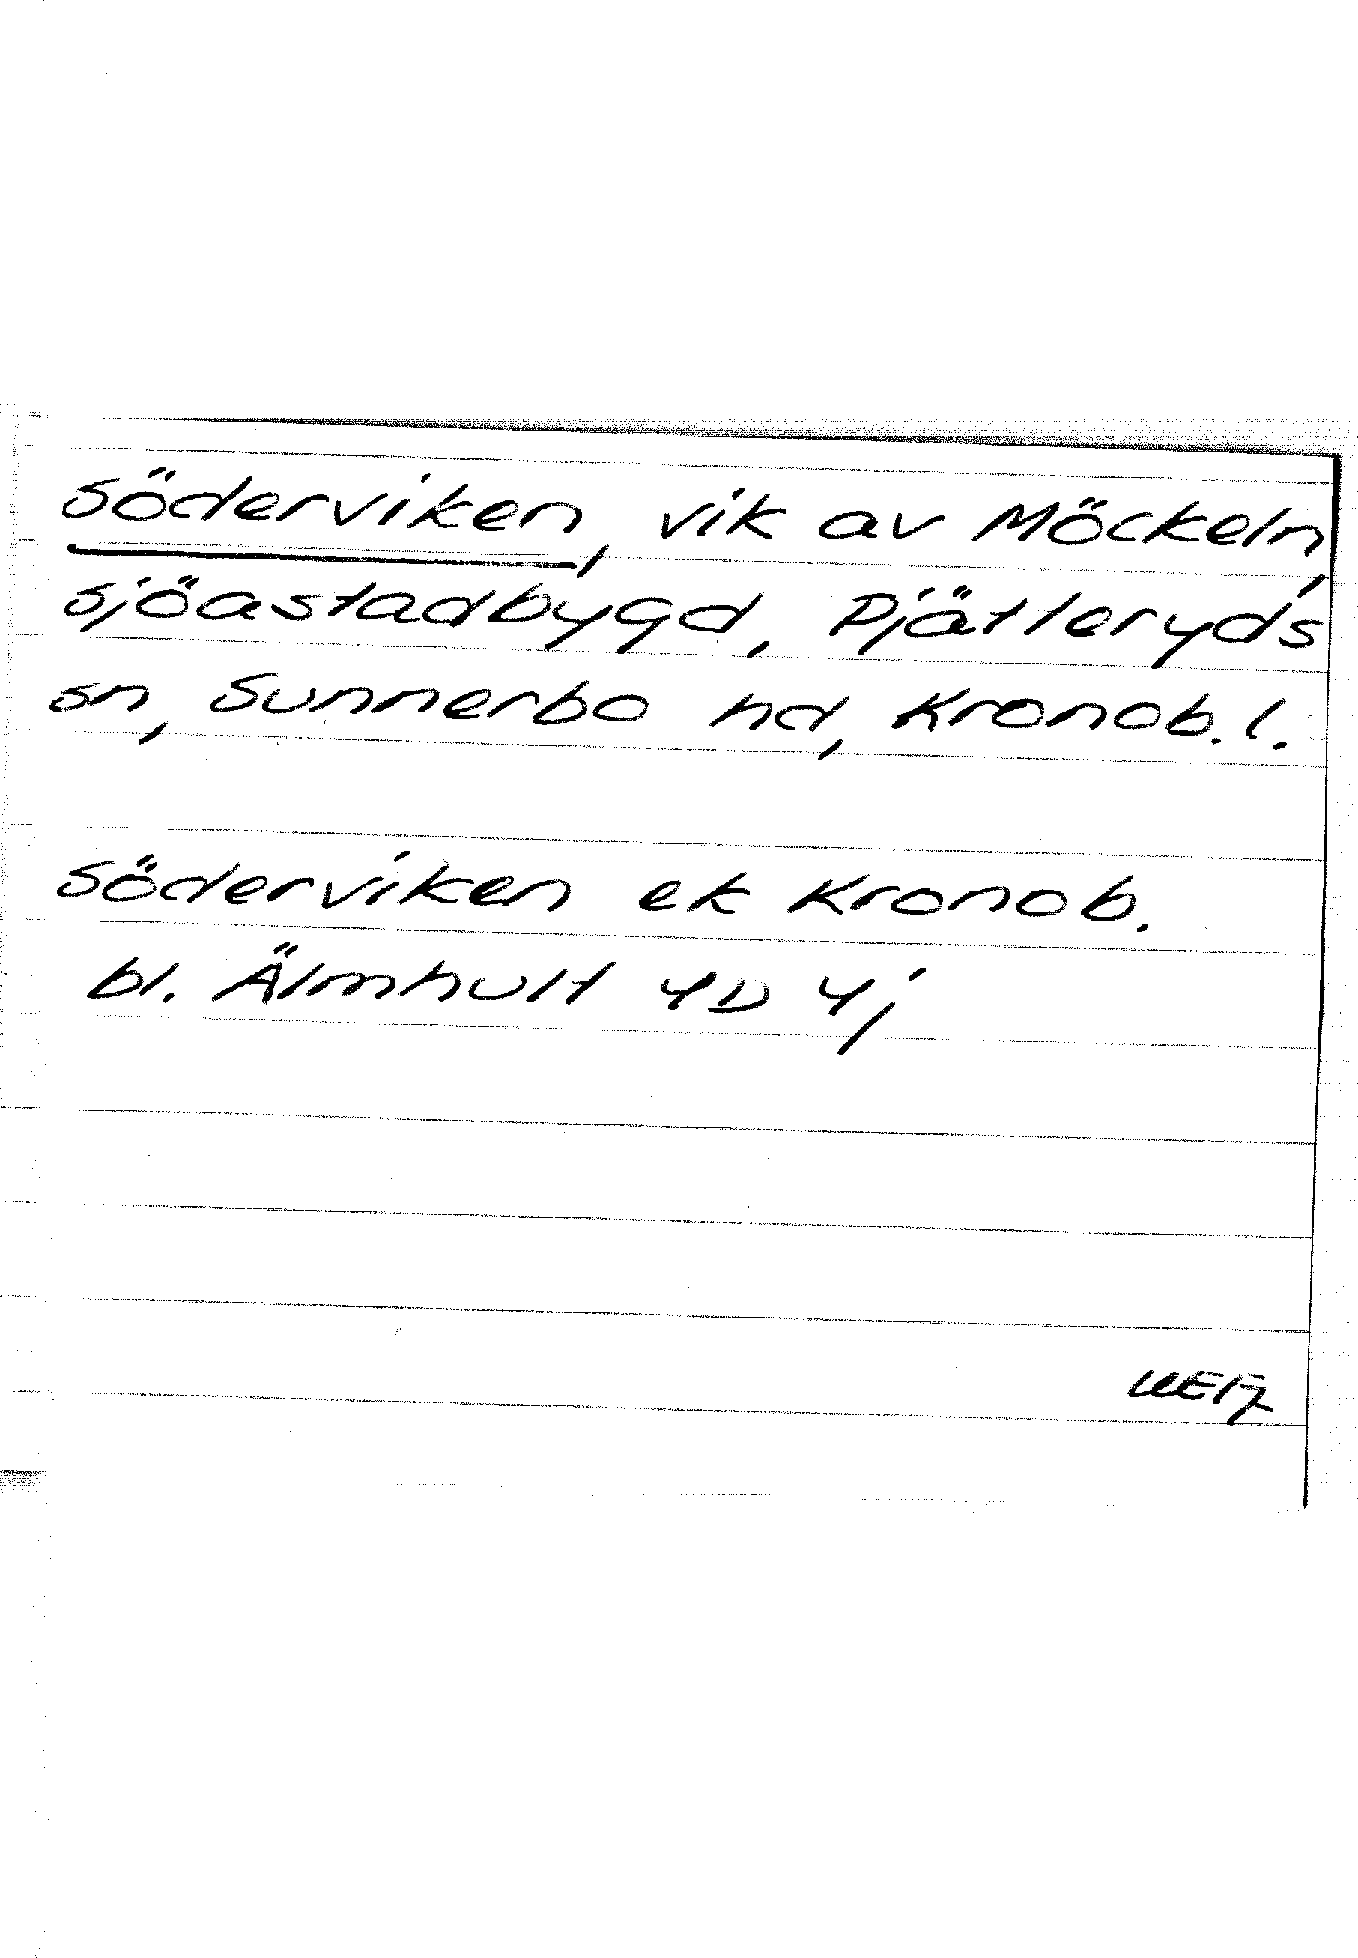 Söderviken, vik av Möckeln,
sjöastadbygd, Pjätteryds
sn, Sunnerbo hd, Kronob. l.
Söderviken ek Kronob.
bl. Älmhult 4D 4j